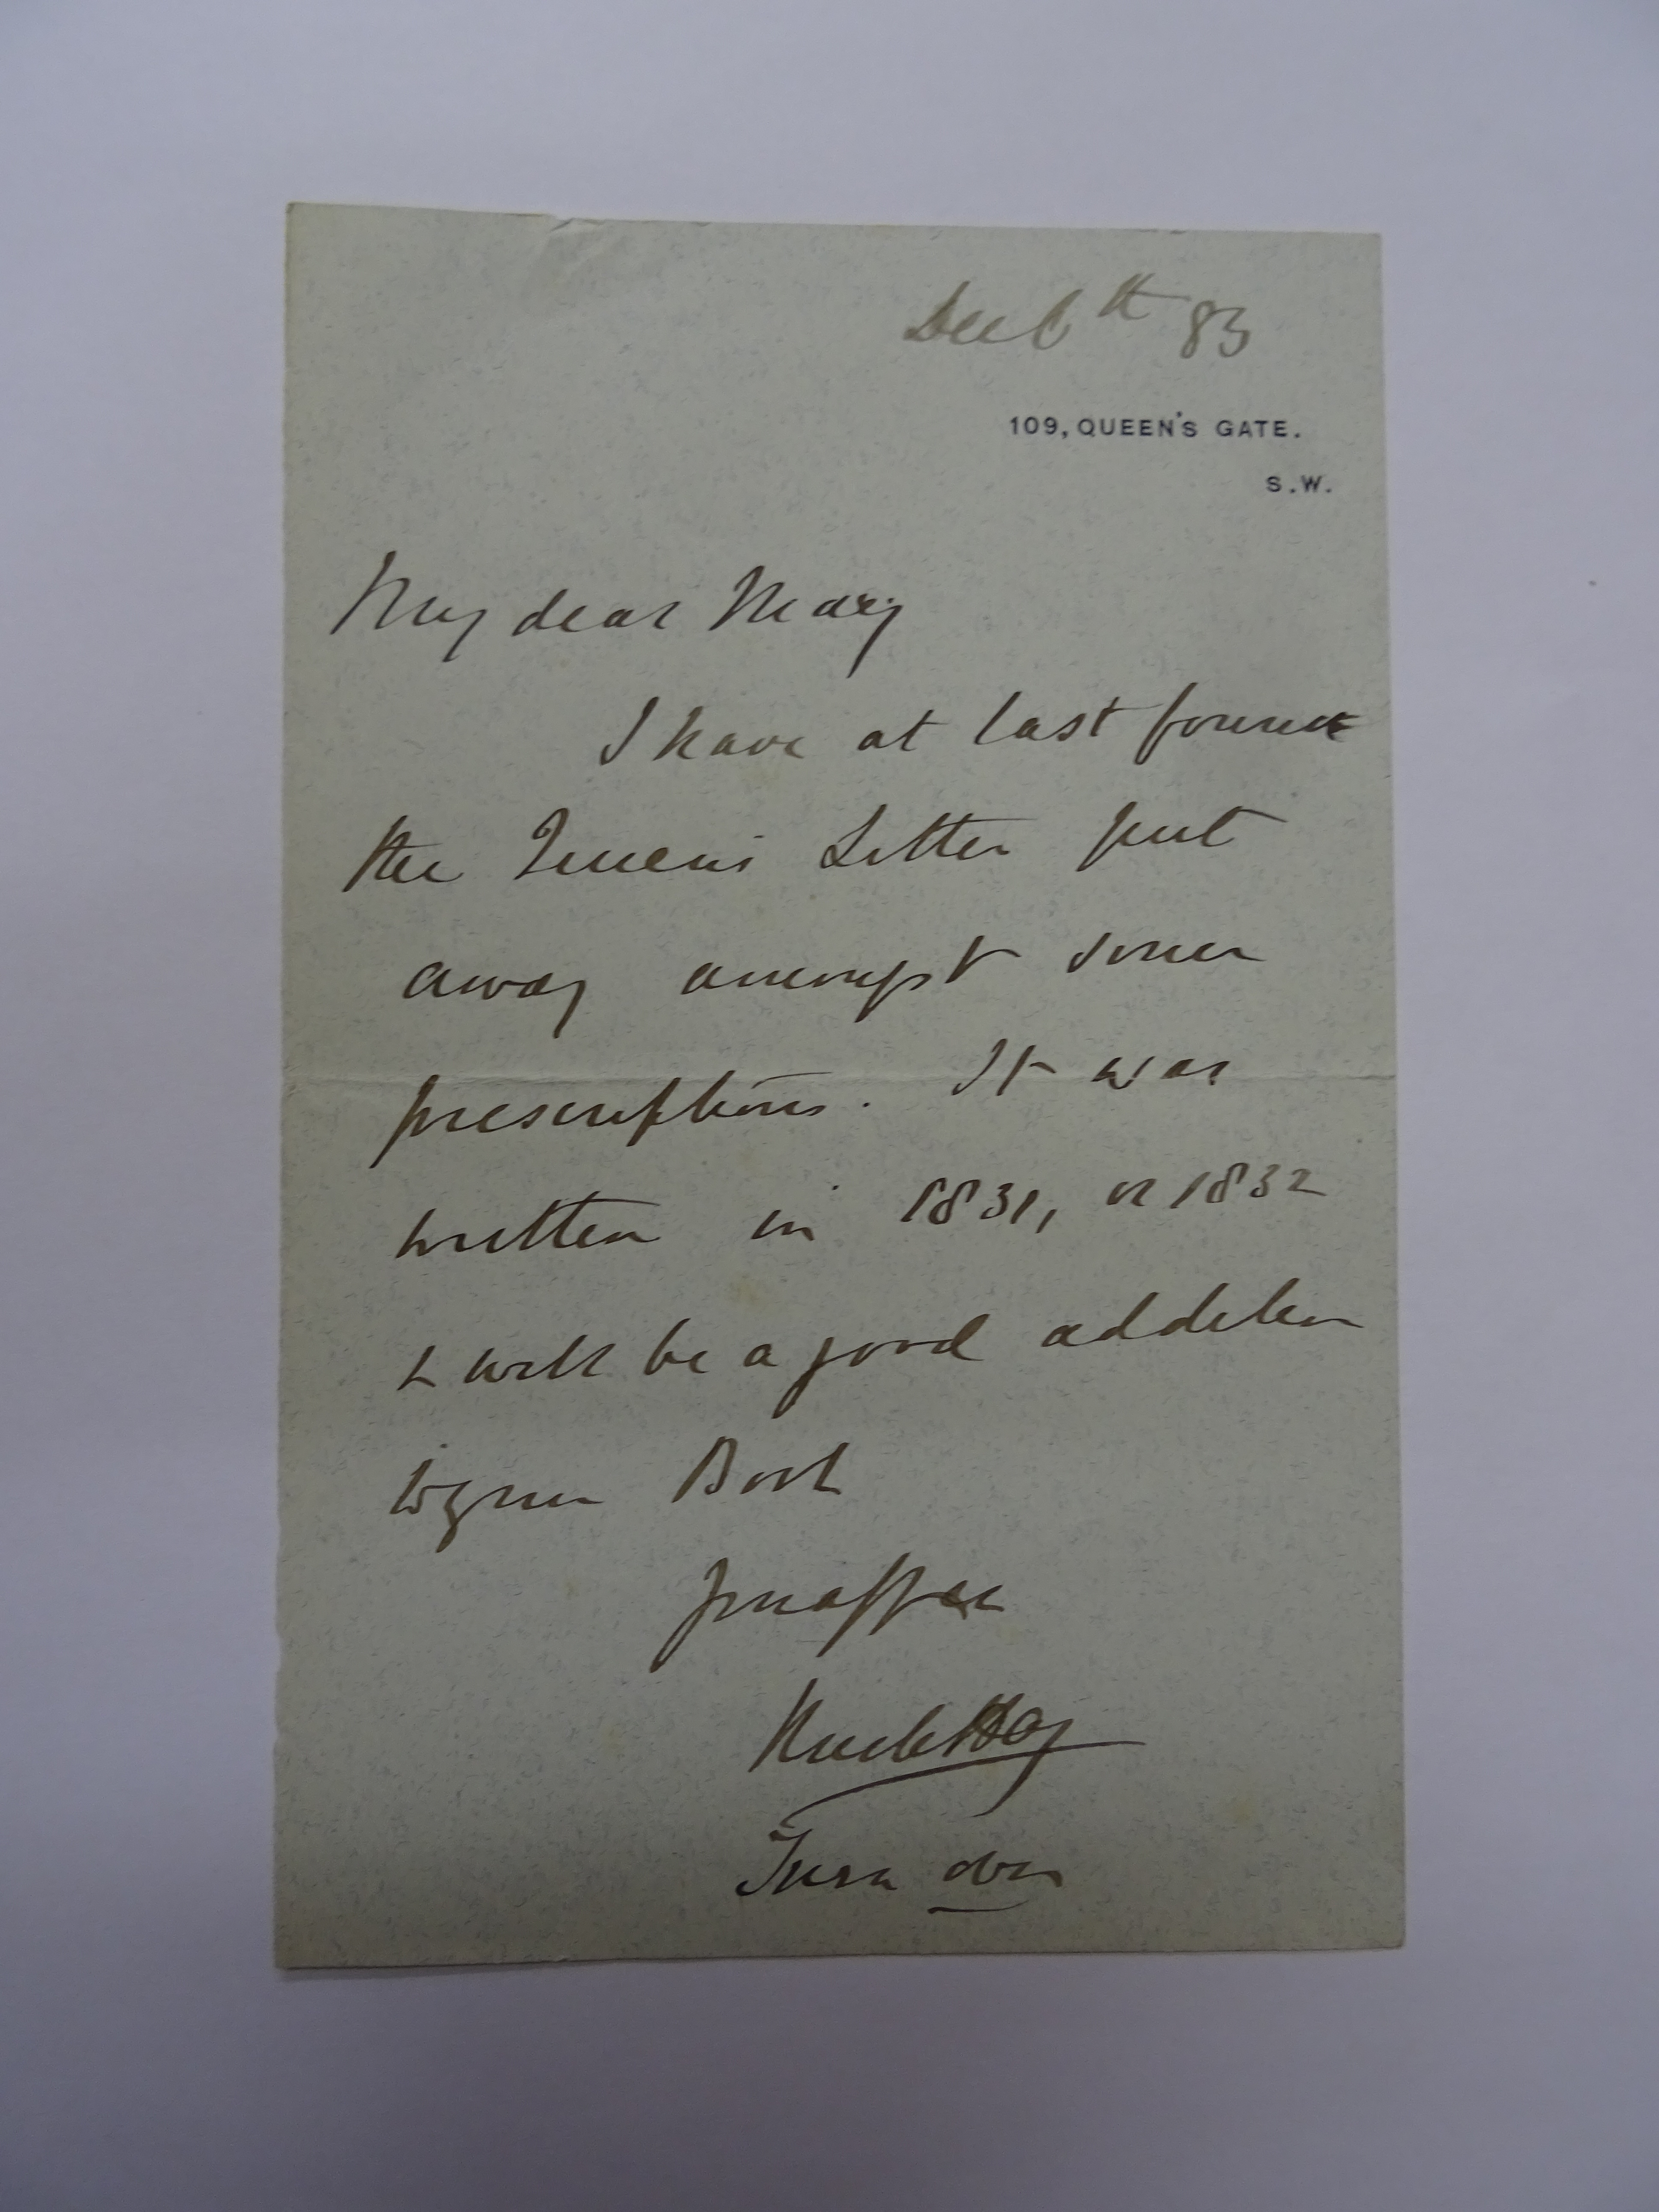 Dec 6th 83
109, QUEEN'S GATE.
S.W.
My dear Mary
I have at last found
the Queens Letter put
away amongst some
prescriptions. It was
written in 1831, or 1832
& will be a good addition
to yr Book
Turn over